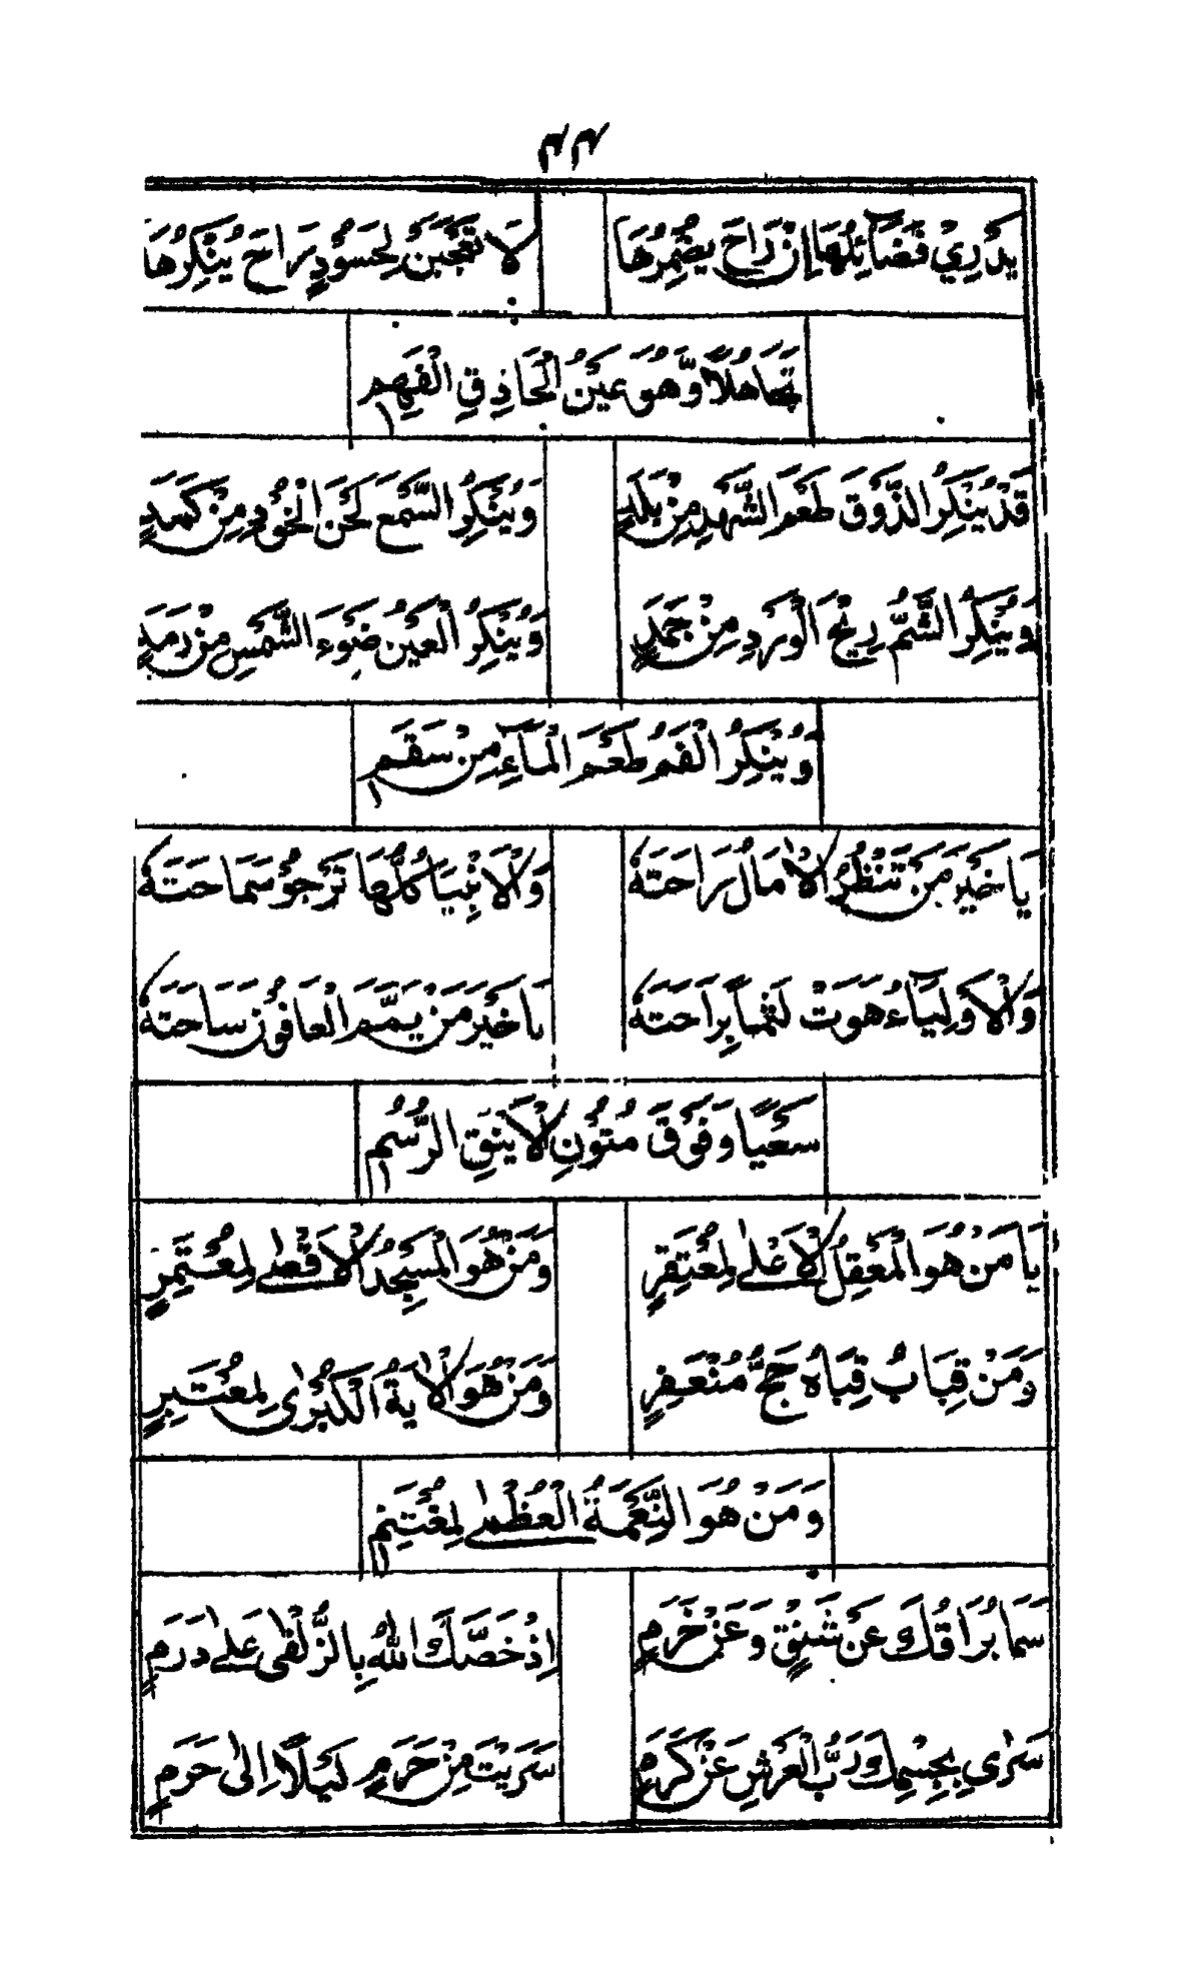 ٣٣
يَدْرِي فَضَآئِلُهَا إِنْ رَاحَ يُضْمِرُهَا لَا تَعْجَبَنْ لِحَسُوْدٍ رَاحَ يُنْكِرُهَا
تَجَاهُلًا وَّهُوَ عَيْنُ الْحَاذِقِ الْفَهِمِ
قَدْ يُنْكِرُ الذَّوْقَ طَعْمَ الشَّهْدِ مِنْ بَلَدٍ وَيُنْكِرُ السَّمْعَ لَحْنَ الْخَوْدِ مِنْ كَمَدٍ
وَيُنْكِرُ الشَّمُّ رِيْحَ الْوَرْدِ مِنْ جَمَدٍ وَيُنْكِرُ الْعَيْنُ ضَوْءَ الشَّمْسِ مِنْ رَمَدٍ
وَيُنْكِرُ الْفَمُ طَعْمَ الْمَآءِ مِنْ سَقَمِ
يَا خَيْرَ مَنْ تَنْظُرُ الْاٰمَالُ رَاحَتَهٗ وَالْاَنْبِيَا كُلُّهَا تَرْجُوْ سَمَاحَتَهٗ
وَالْاَوْلِيَآءُ هَوَتْ لَثْمًا بِرَاحَتِهٗ يَا خَيْرَ مَنْ يَمَّمَ الْعَافُوْنَ سَاحَتَهٗ
سَعْيًا وَفَوْقَ مُتُوْنِ الْاَيْنُقِ الرُّسُمِ
يَا مَنْ هُوَ الْمَعْقِلُ الْاَعْلٰى لِمُعْتَقِرٍ وَمَنْ هُوَ الْمَسْجِدُ الْاَقْصٰى لِمُعْتَمِرٍ
وَمَنْ قِبَابُ قِبَاهُ حَجُّ مُنْعَفِرٍ وَمَنْ هُوَ الْاٰيَةُ الْكُبْرٰى لِمُعْتَبِرٍ
وَمَنْ هُوَ النِّعْمَةُ الْعُظْمٰى لِمُغْتَنِمِ
سَمَا بُرَاقُكَ عَنْ شَنْقٍ وَعَنْ خَرَمِ اِذْ خَصَّكَ اللّٰهُ بِالزُّلْفٰى عَلٰى دَرَمِ
سَرٰي بِجِسْمِكَ رَبُّ الْعَرْشِ عَنْ كَرَمٍ سَرَيْتَ مِنْ حَرَمٍ لَيْلًا اِلٰى حَرَمِ